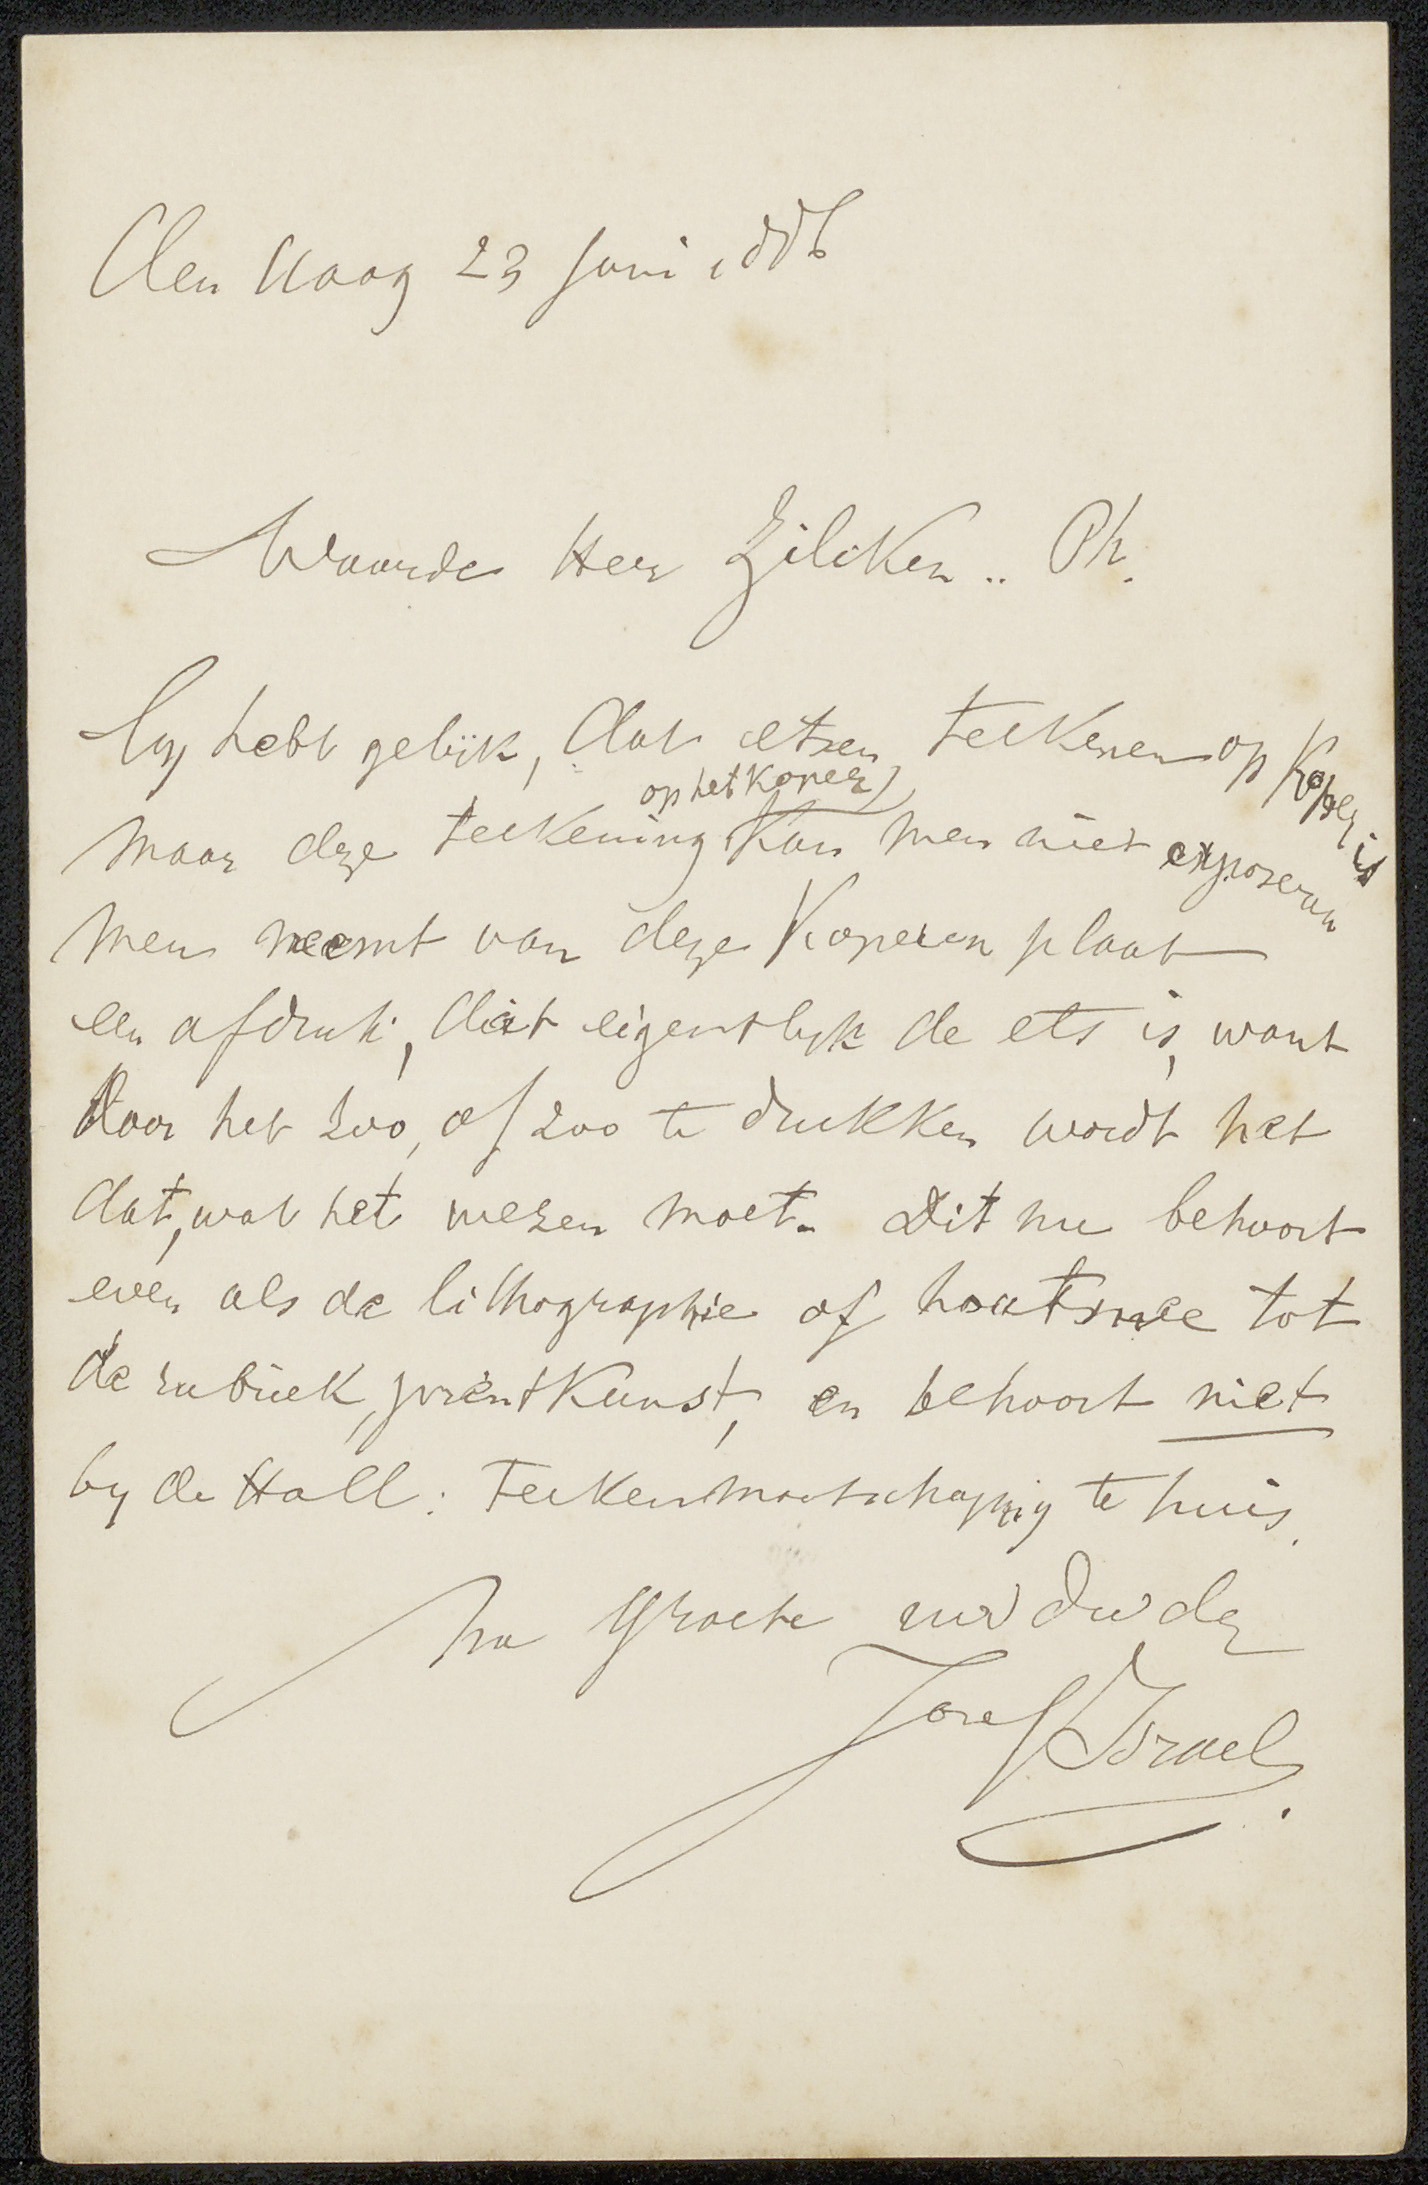 Den Haag 23 Juni 1886
Waarde Heer Zilcken .. Ph.
Gy hebt gelijk, dat etsen teekenen op Koper is
op het Koper
maar deze teekening kan men niet exposeren
men neemt van deze Koperen plaat
een afdruk, dat eigentlyk de ets is, want
door het zoo, of zoo te drukken wordt het
dat, wat het wezen moet. Dit nu behoort
even als de lithographie of houtsnee tot
de rubriek, prentkunst, en behoort niet
by de Holl: Teekenmaatschappy te huis.
Na Groete uw dw dr
Jozef Israels.